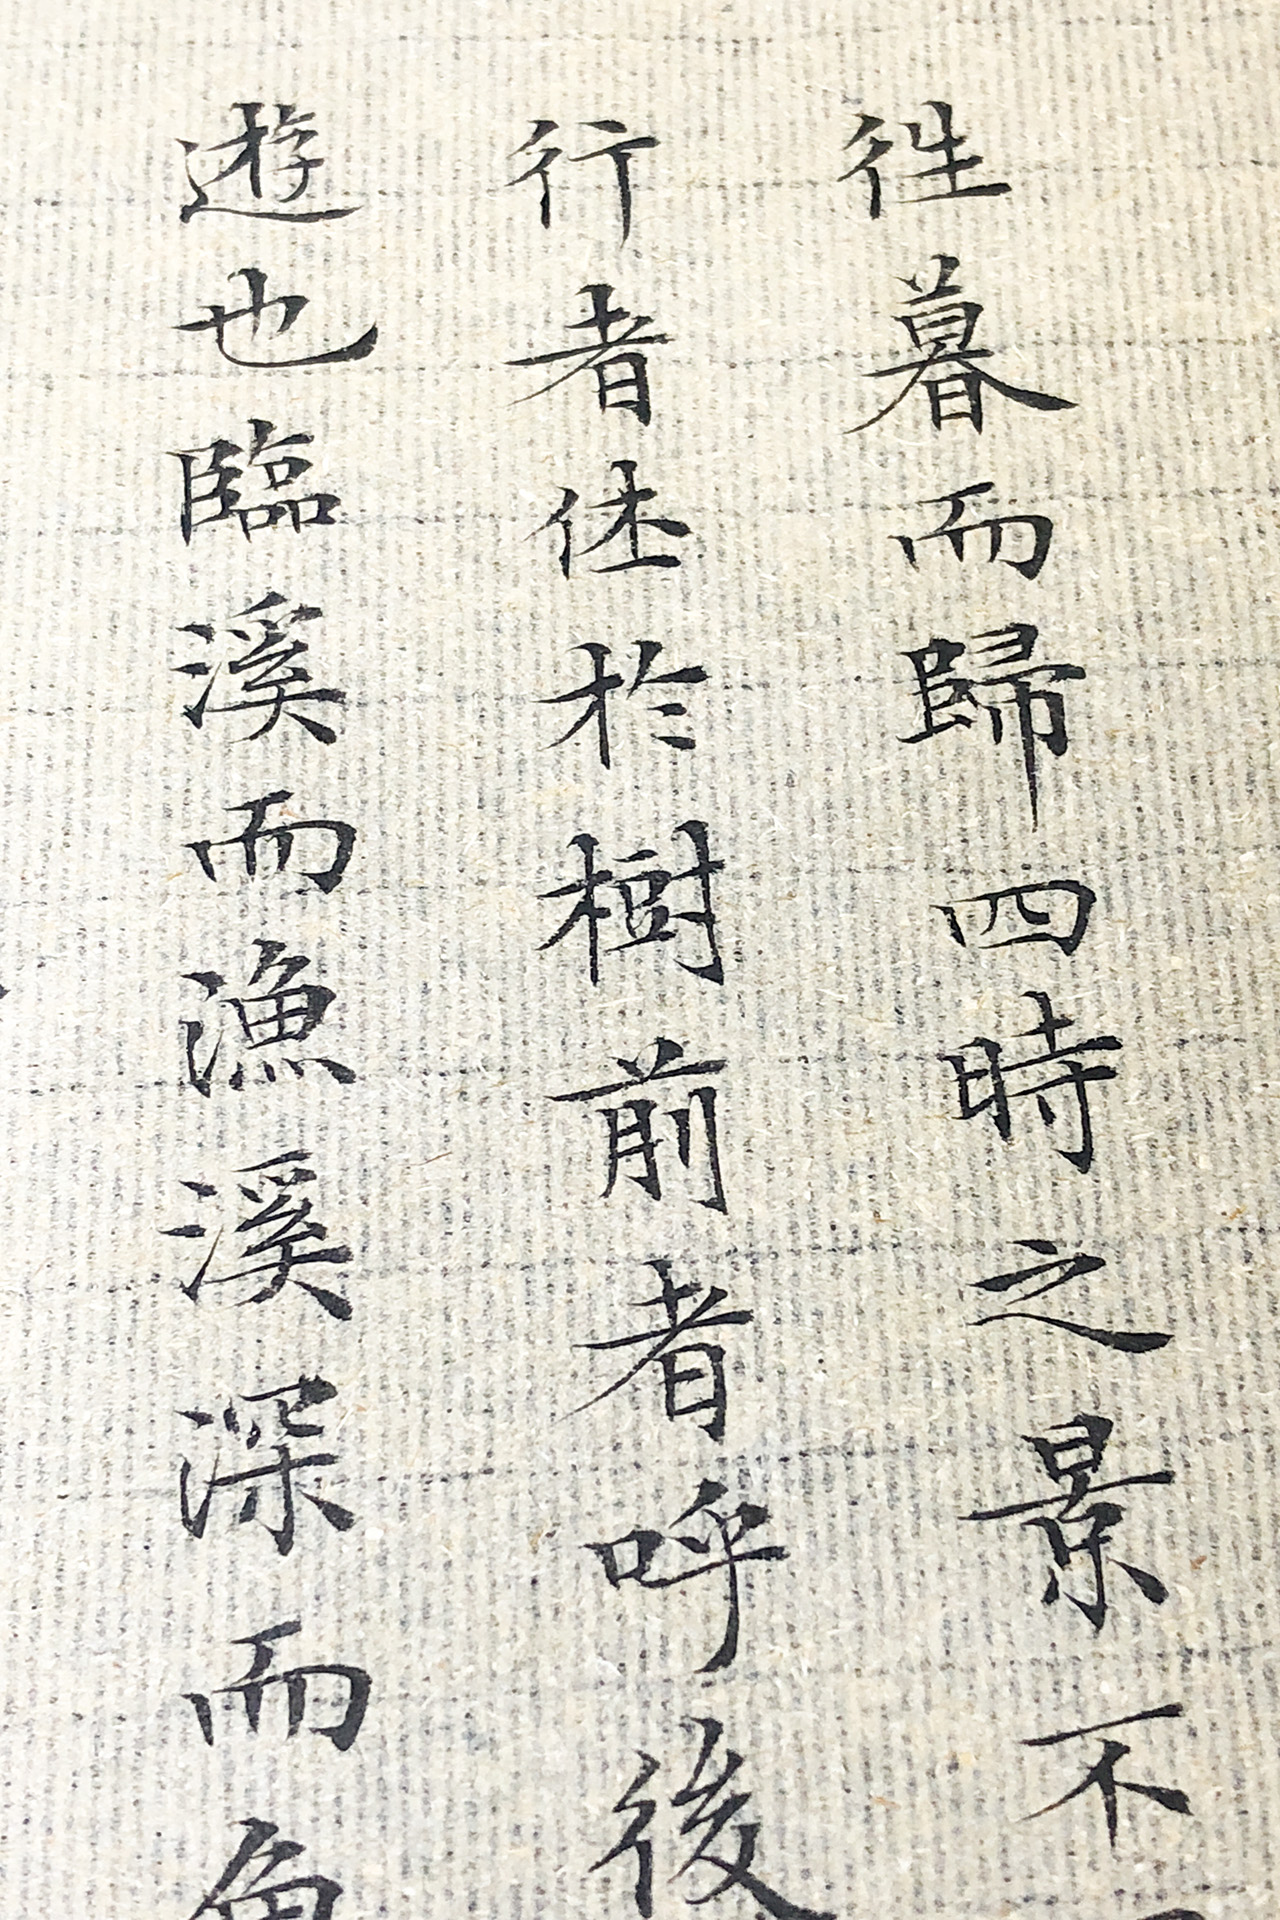 往暮而歸四時之景不
行者休於樹前者呼後
遊也臨溪而漁溪深而魚